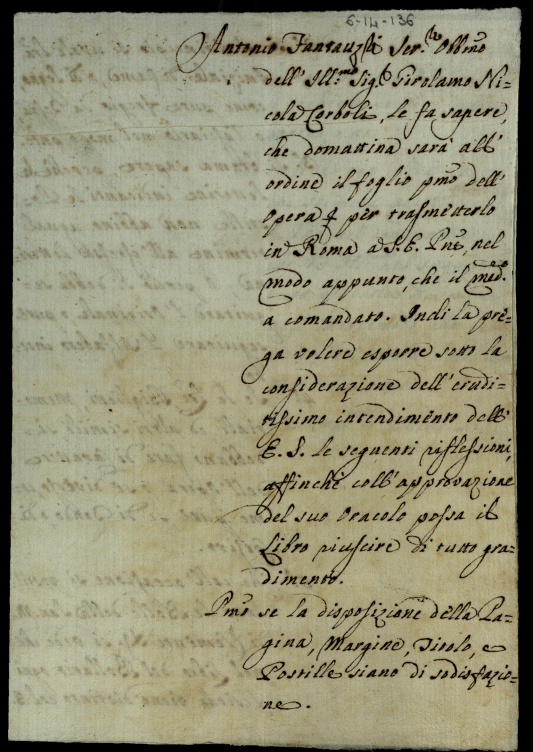 6-14-136
Antonio Fantauzzi Ser.re Obb.mo
dell' Ill.mo Sig.r Girolamo Ni-
cola Corboli, le fa sapere,
che domattina sarà all'
ordine il foglio p̃mo dell'
Opera per trasmetterlo
in Roma a S. E. Pñe, nel
modo appunto, che il med.o
a comandato. Indi la pre-
ga volere esporre sotto la
considerazione dell' erudi-
tissimo intendimẽto dell'
E. S. le seguenti riflessioni,
affinchè coll' approvazione
del suo Oracolo possa il
Libro riuscire di tutto gra-
dimento.
P̃mo se la disposizione della Pa-
gina, Margine, Titolo, e
Postille siano di sodisfazio-
ne.